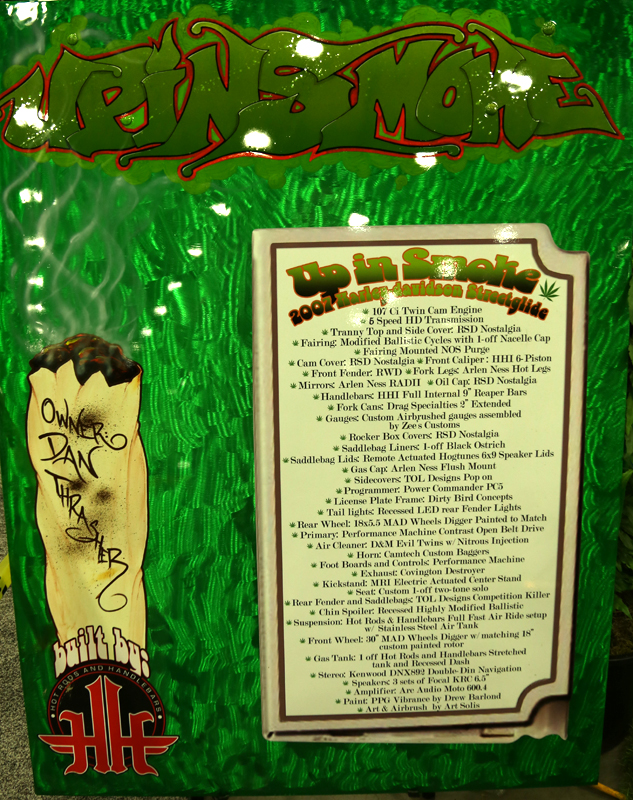 UP IN SMOKE
Up in Smoke
2007 Harley-davidson Streetglide
107 Ci Twin Cam Engine
5 Speed HD Transmission
Tranny Top and Side Cover: RSD Nostalgia
Fairing: Modified Ballistic Cycles with 1-off Nacelle Cap
Fairing Mounted NOS Purge
Cam Cover: RSD Nostalgia Front Caliper: HHI 6-Piston
Front Fender: RWD Fork Legs: Arlen Ness Hot Legs
Mirrors: Arlen Ness RADII Oil Cap: RSD Nostalgia
Handlebars: HHI Full Internal 9" Reaper Bars
Fork Cans: Drag Specialties 2" Extended
Gauges: Custom Airbrushed gauges assembled
by Zee's Customs
Rocker Box Covers: RSD Nostalgia
Saddlebag Liners: 1-off Black Ostrich
Saddlebag Lids: Remote Actuated Hogtunes 6x9 Speaker Lids
Gas Cap: Arlen Ness Flush Mount
Sidecovers: TOL Designs Pop on
Programmer: Power Commander PC5
License Plate Frame: Dirty Bird Concepts
Tail lights: Recessed LED rear Fender Lights
Rear Wheel: 18x5.5 MAD Wheels Digger Painted to Match
Primary: Performance Machine Contrast Open Belt Drive
Air Cleaner: D&M Evil Twins w/ Nitrous Injection
Horn: Camtech Custom Baggers
Foot Boards and Controls: Performance Machine
Exhaust: Covington Destroyer
Kickstand: MRI Electric Actuated Center Stand
Seat: Custom 1-off two-tone solo
Rear Fender and Saddlebags: TOL Designs Competition Killer
Chin Spoiler: Recessed Highly Modified Ballistic
Suspension: Hot Rods & Handlebars Full Fast Air Ride setup
w/ Stainless Steel Air Tank
Front Wheel: 30" MAD Wheels Digger w/ matching 18"
custom painted rotor
Gas Tank: 1 off Hot Rods and Handlebars Stretched
tank and Recessed Dash
Stereo: Kenwood DNX892 Double-Din Navigation
Speakers: 3 sets of Focal KRC 6.5"
Amplifier: Arc Audio Moto 600.4
Paint: PPG Vibrance by Drew Barlond
Art & Airbrush by Art Solis
OWNER:
DAN
THRASHER
built by:
HOT RODS AND HANDLEBARS
HH